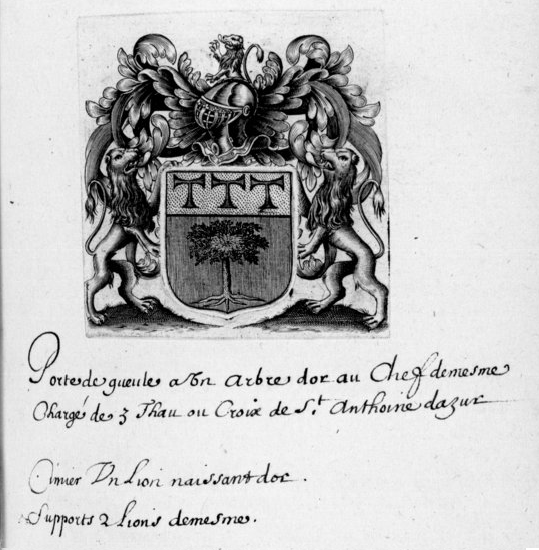 Porte de gueule a Un Arbre dor au Chef demesme
Chargé de 3 Thau ou Croix de S.t Anthoine dazur
Cimier Un Lion naissant dor.
Supports 2 Lions demesme.